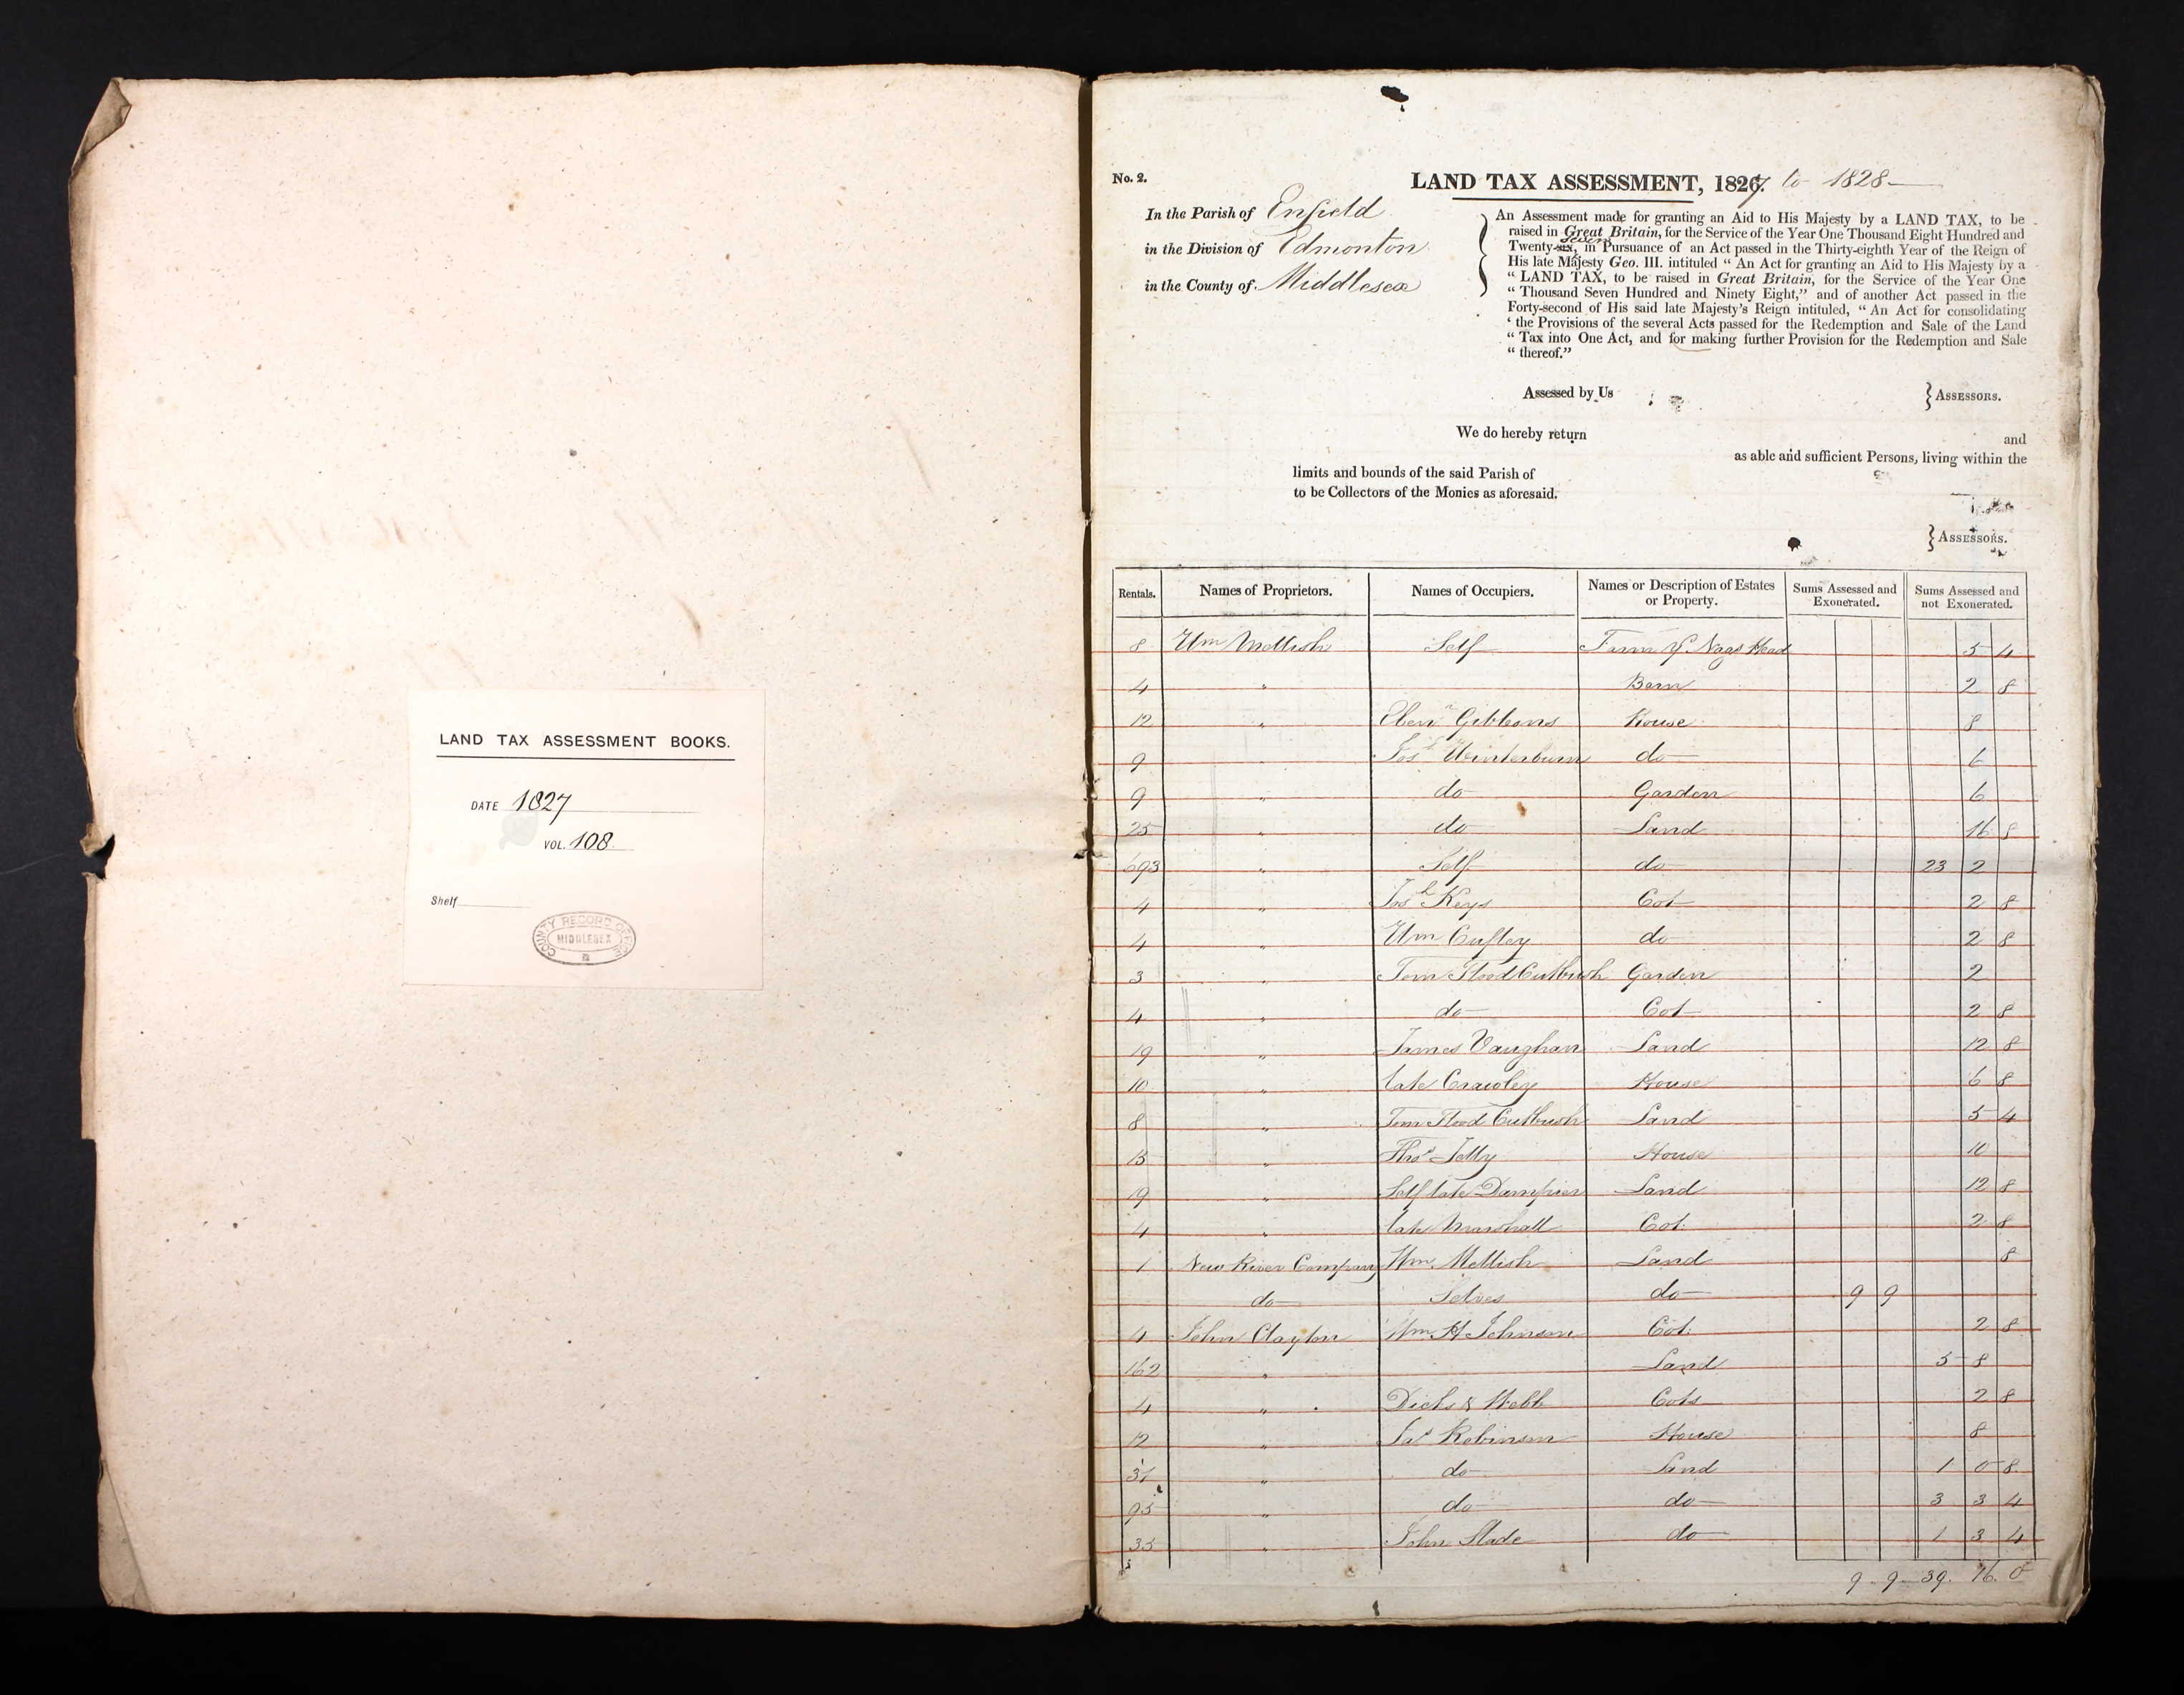 LAND TAX ASSESSMENT BOOKS.
DATE 1827
VOL. 108
Shelf
COUNTY RECORD OFFICE
MIDDLESEX
No. 2.
LAND TAX ASSESSMENT, 1827 to 1828
In the Parish of Enfield
in the Division of Edmonton
in the County of Middlesex
An Assessment made for granting an Aid to His Majesty by a LAND TAX, to be
raised in Great Britain, for the Service of the Year One Thousand Eight Hundred and
Twenty-six, seven in Pursuance of an Act passed in the Thirty-eighth Year of the Reign of
His late Majesty Geo. III. intituled “ An Act for granting an Aid to His Majesty by a
“ LAND TAX, to be raised in Great Britain, for the Service of the Year One
“ Thousand Seven Hundred and Ninety Eight,” and of another Act passed in the
Forty-second of His said late Majesty's Reign intituled, “ An Act for consolidating
‘ the Provisions of the several Acts passed for the Redemption and Sale of the Land
“ Tax into One Act, and for making further Provision for the Redemption and Sale
“ thereof.”
Assessed by Us } ASSESSORS.
We do hereby return and
as able and sufficient Persons, living within the
limits and bounds of the said Parish of
to be Collectors of the Monies as aforesaid.
} ASSESSORS.
Rentals. Names of Proprietors. Names of Occupiers. Names or Description of Estates or Property. Sums Assessed and Exonerated. Sums Assessed and not Exonerated.
8 Wm Mellish Self Farm Nags Head 5 4
4 " Barn 2 8
12 " Ebenr Gibbons House 8
9 " Josh Winterburn do 6
9 " do Garden 6
25 " do Land 16 8
693 " Self do 23 2
4 " Josh Keys Cot 2 8
4 " Wm Cufley do 2 8
3 " Tom Flood Cutbush Garden 2
4 " do Cot 2 8
19 " James Vaughan Land 12 8
10 " late Crawley House 6 8
8 " Tom Flood Cutbush Land 5 4
15 " Thos Jelly House 10
19 " Self late Dampier Land 12 8
4 " late Marshall Cot. 2 8
1 New River Company Wm Mellish Land 8
do Selves do 9 9
4 John Clayton Wm H Johnson Cot. 2 8
162 " Land 5 8
4 " Dicks & Webb Cots 2 8
12 " Jas Robinson House 8
31 " do Land 1 0 8
95 " do do 3 3 4
35 " John Slade do 1 3 4
9 - 9 - 39. 16. 0